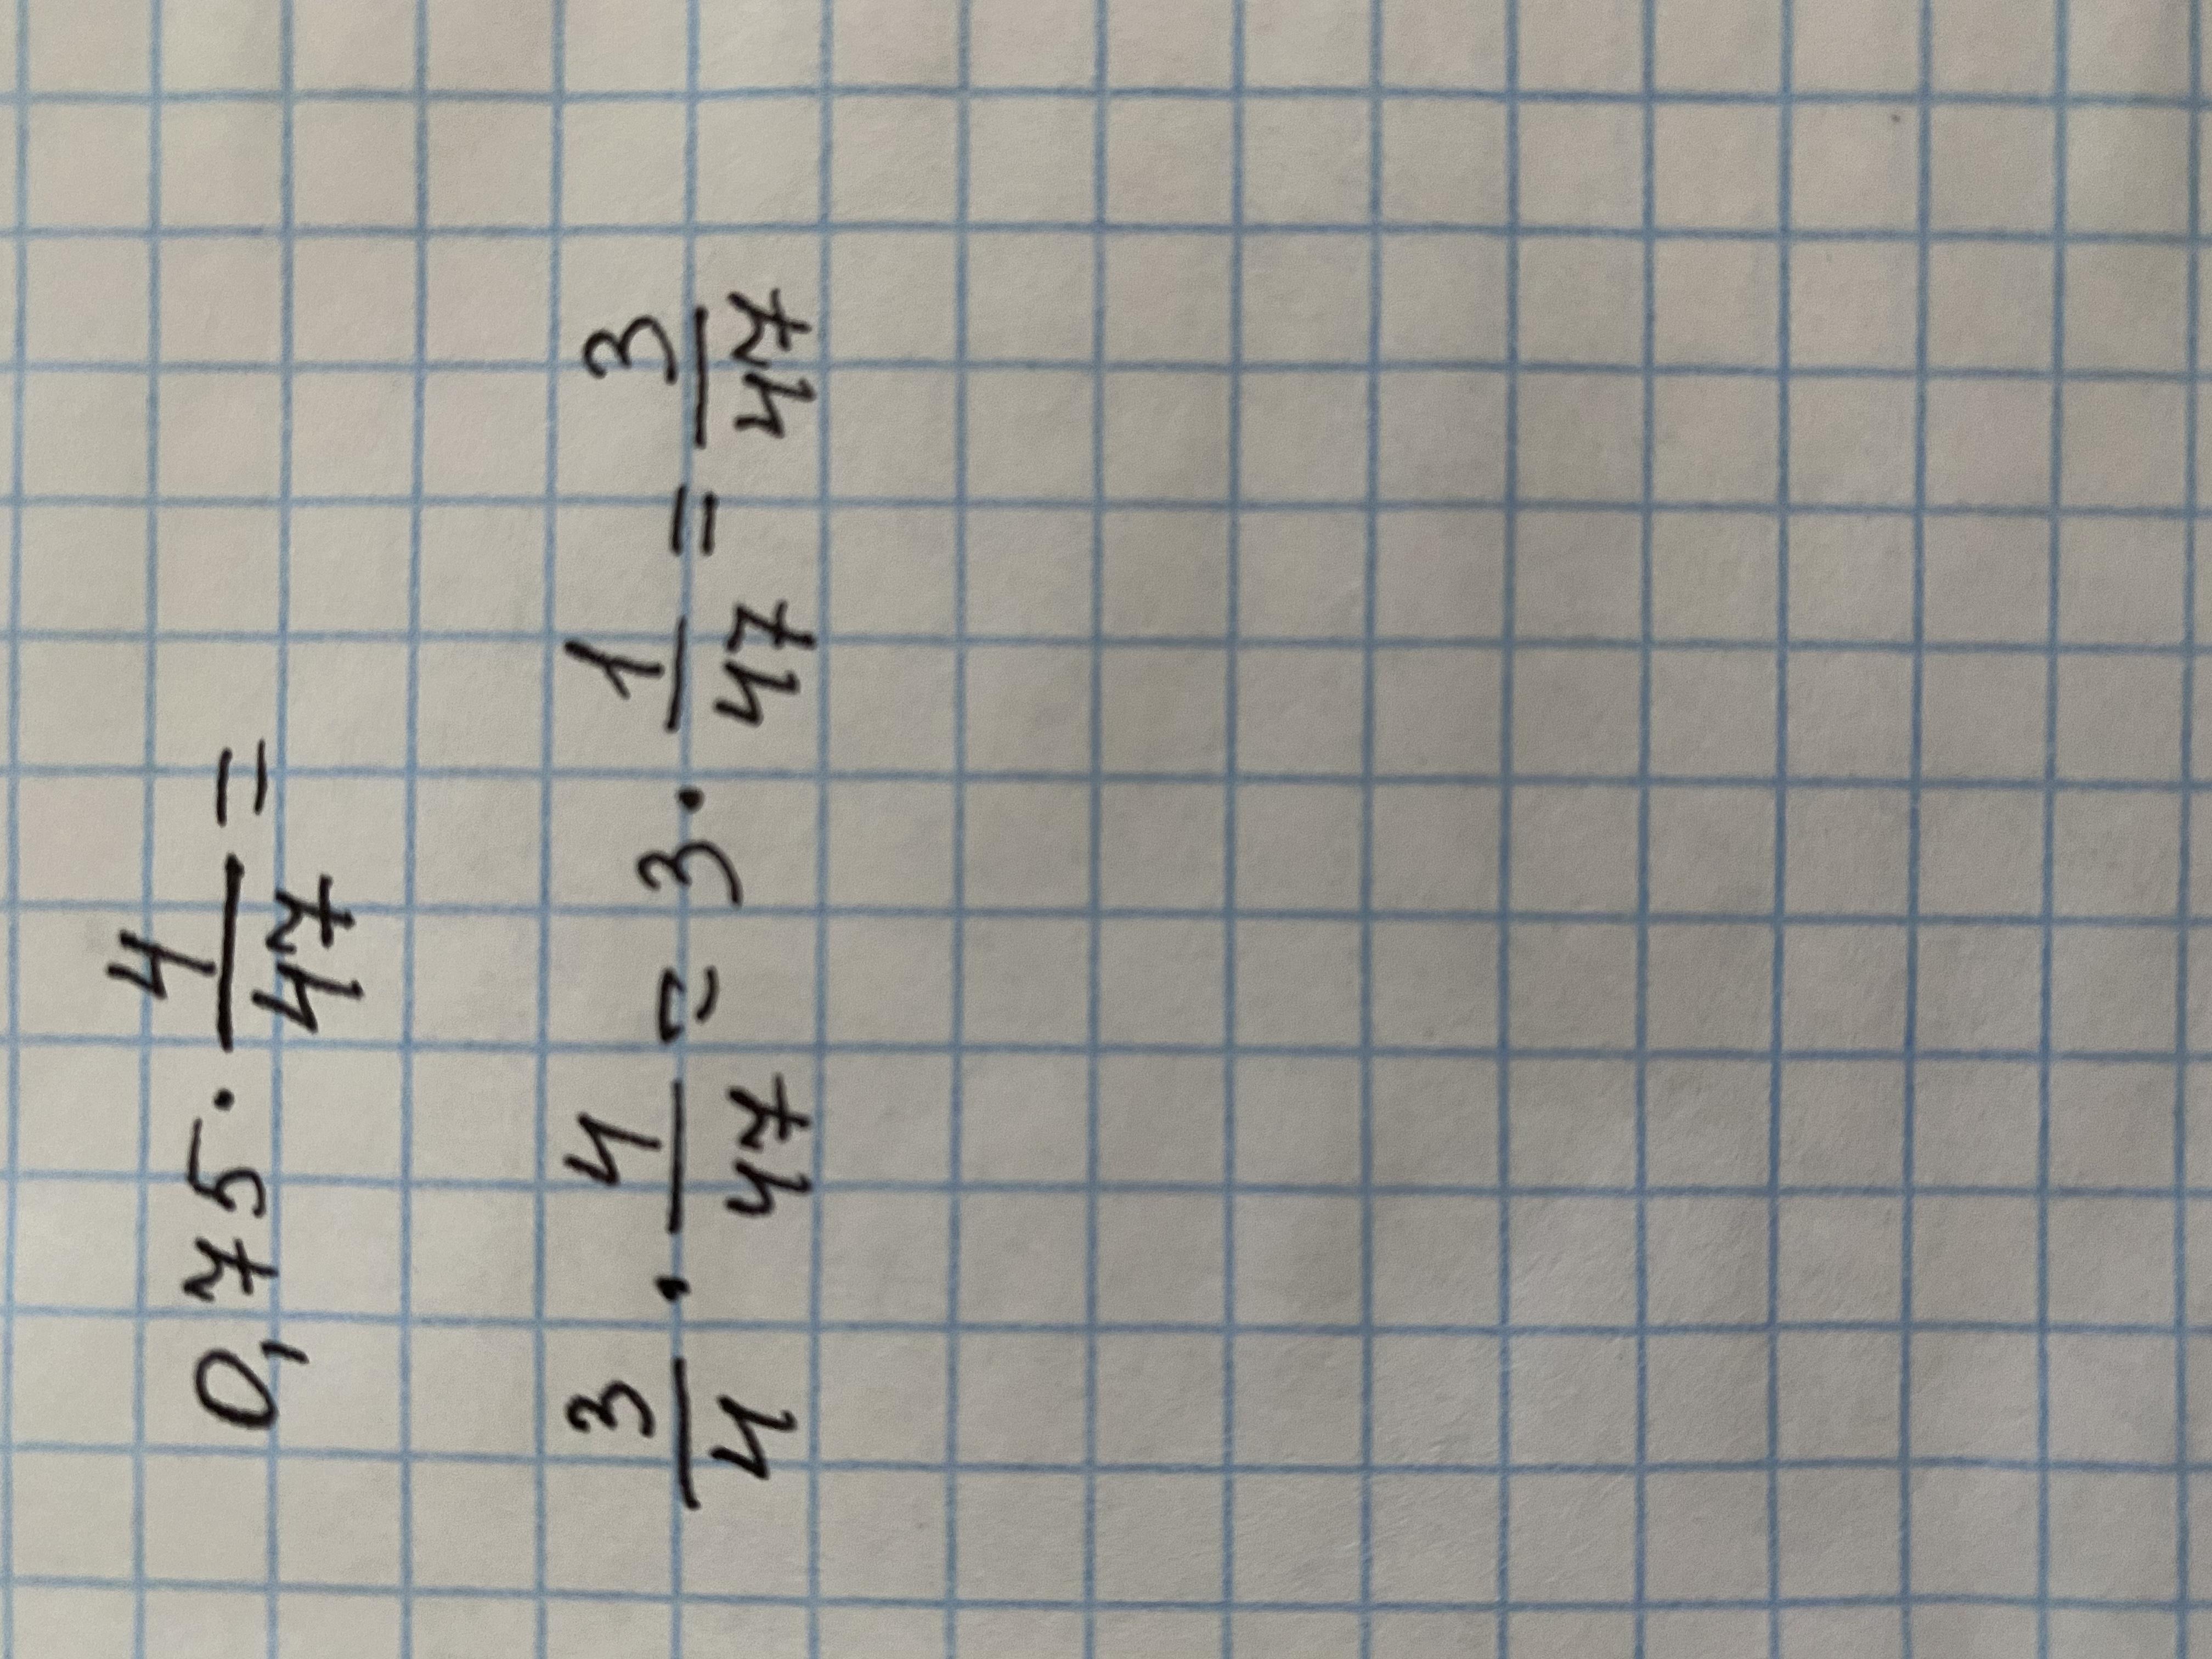 0,75 · 4/47 =
3/4 · 4/47 = 3 · 1/47 = 3/47